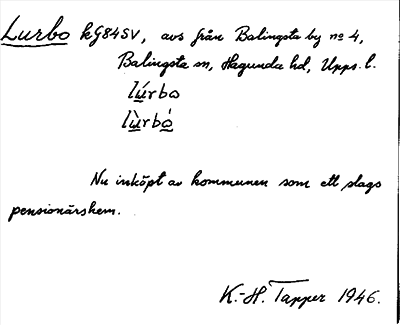 Lurbo kG84SV, avs från Balingsta by no 4,
Balingsta sn, Hagunda hd, Upps. l.
lúrbo
lùrbó
Nu inköpt av kommunen som ett slags
pensionärshem.
K.-H. Tapper 1946.